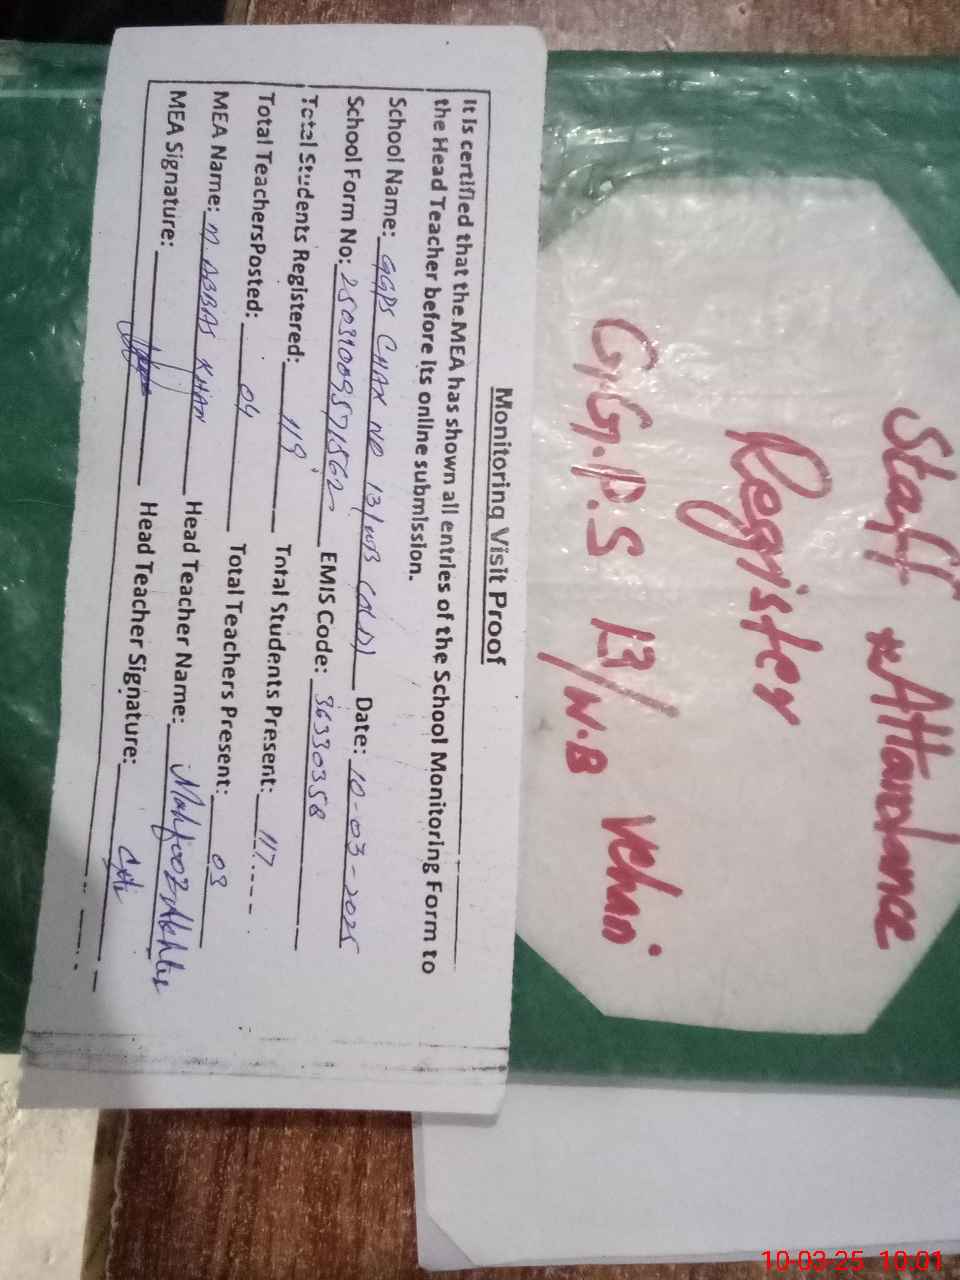 Staff Attandance
Register
G.G.P.S 13/N.B Vehari
Monitoring Visit Proof
It is certified that the MEA has shown all entries of the School Monitoring Form to
the Head Teacher before its online submission.
School Name: GGPS CHAK NO 13/WB (OLD) Date: 10-03-2025
School Form No: EMIS Code: 36330358
Total Students Registered: 119 Total Students Present: 117
Total TeachersPosted: 04 Total Teachers Present: 03
MEA Name: M ABBAS KHAN Head Teacher Name: Mahfooz Akhter
MEA Signature: Head Teacher Signature:
10-03-25 10:01